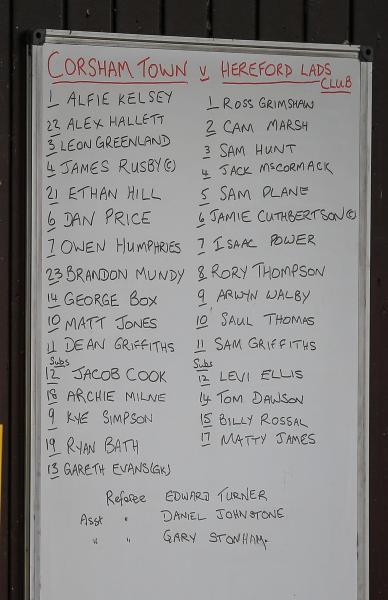 CORSHAM TOWN v HEREFORD LADS CLUB
1 ALFIE KELSEY
22 ALEX HALLETT
3 LEON GREENLAND
4 JAMES RUSBY (C)
21 ETHAN HILL
6 DAN PRICE
7 OWEN HUMPHRIES
23 BRANDON MUNDY
14 GEORGE BOX
10 MATT JONES
11 DEAN GRIFFITHS
Subs
12 JACOB COOK
18 ARCHIE MILNE
9 KYE SIMPSON
19 RYAN BATH
13 GARETH EVANS (GK)
1 ROSS GRIMSHAW
2 CAM MARSH
3 SAM HUNT
4 JACK McCORMACK
5 SAM PLANE
6 JAMIE CUTHBERTSON (C)
7 ISAAC POWER
8 RORY THOMPSON
9 ARWYN WALBY
10 SAUL THOMAS
11 SAM GRIFFITHS
Subs
12 LEVI ELLIS
14 TOM DAWSON
15 BILLY ROSSAL
17 MATTY JAMES
Referee EDWARD TURNER
Asst " DANIEL JOHNSTONE
" " GARY STONHAM